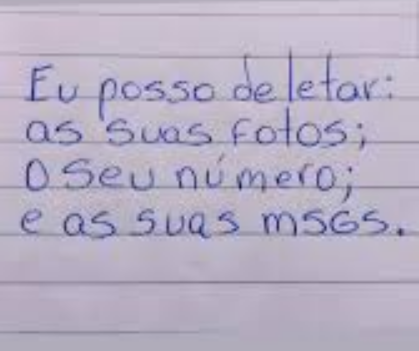 Eu posso deletar:
as suas fotos;
O seu número;
e as suas msgs.